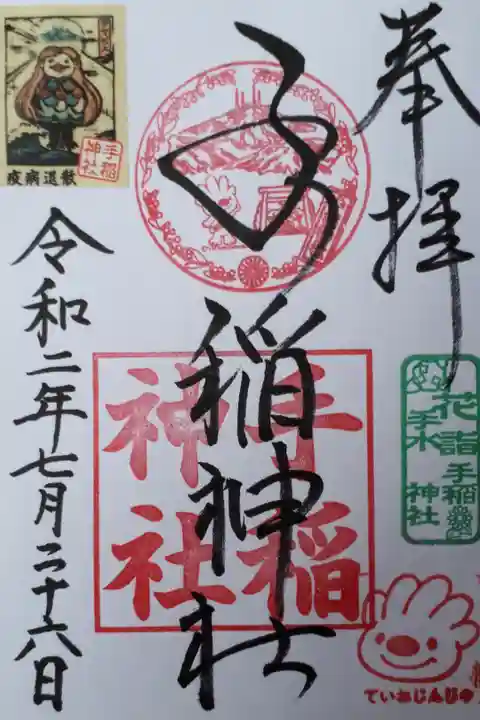 奉拝
手稲神社
手稲
神社
花詣
手水
手稲
神社
ていねじんじゃ
疫病退散
手稲
神社
令和二年七月二十六日